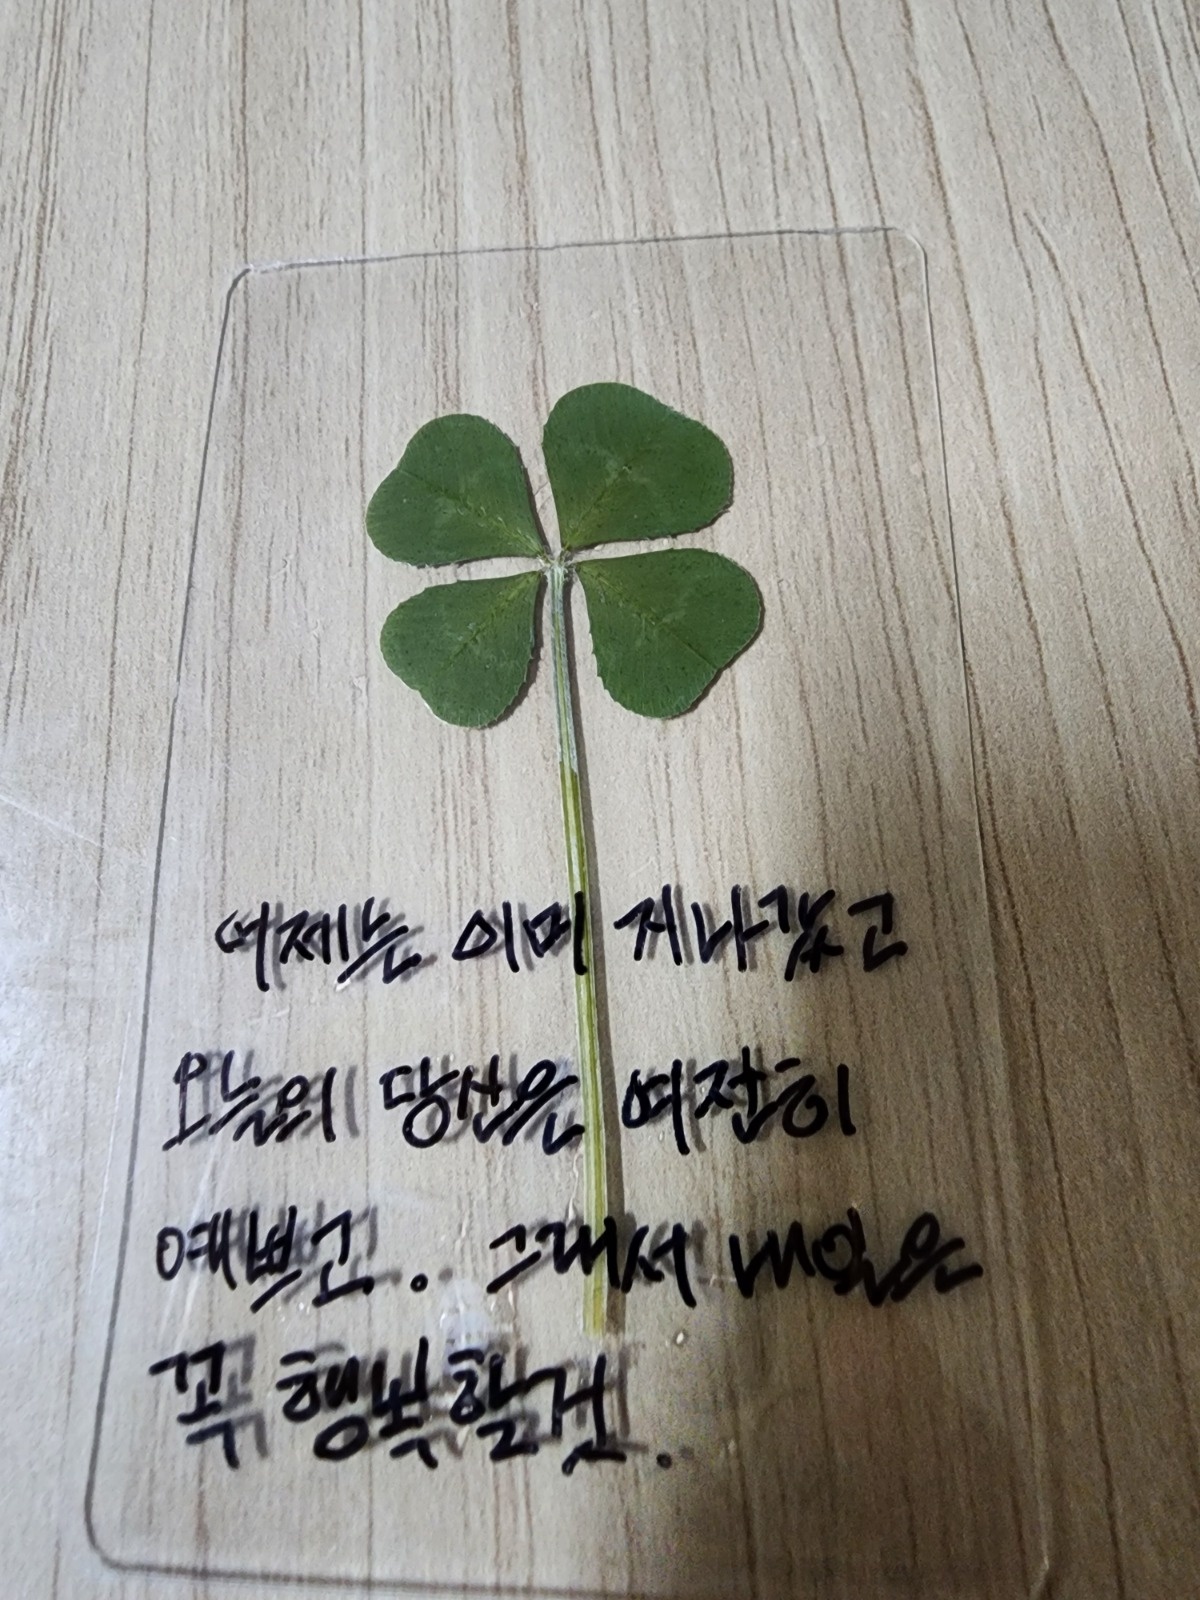 어제는 이미 지나갔고
오늘의 당신은 여전히
예쁘고. 그래서 내일은
꼭 행복할것.